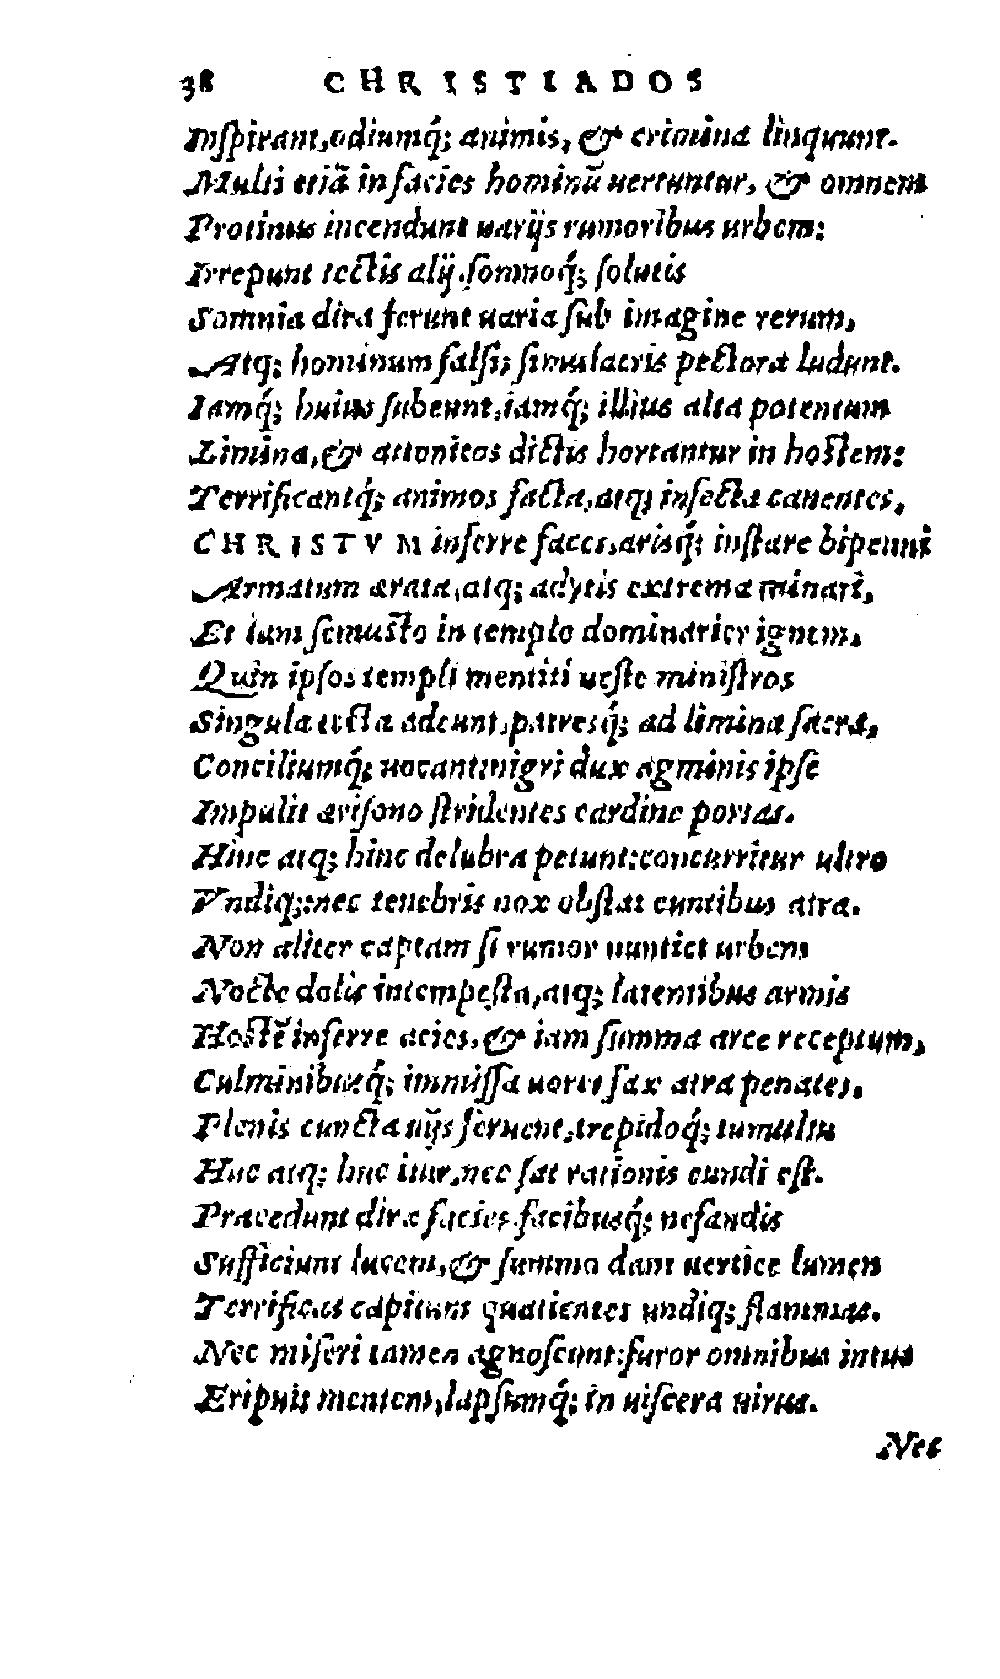 38 CHRISTIADOS
Inſpirant,odiumq́; animis, & crimina linquunt.
Multi etiã in facies hominũ uertuntur, & omnem
Protinus incendunt uarijs rumoribus urbem:
Irrepunt tectis alij,ſomnoq́; ſolutis
Somnia dira ferunt uaria ſub imagine rerum,
Atq; hominum falſis ſimulacris pectora ludunt.
Iamq́; huius ſubeunt,iamq́; illius alta potentum
Limina,& attonitos dictis hortantur in hoſtem:
Terrificantq́; animos facta,atq; infecta canentes,
CHRISTVM inferre faces,arisq́; inſtare bipenni
Armatum ærata,atq; adytis extrema minari,
Et iam ſemuſto in templo dominarier ignem,
Quin ipſos templi mentiti ueſte miniſtros
Singula tecta adeunt,patresq́; ad limina ſacra,
Conciliumq́; uocant:nigri dux agminis ipſe
Impulit æriſono ſtridentes cardine portas.
Hinc atq; hinc delubra petunt:concurritur ultro
Vndiq;:nec tenebris nox obſtat euntibus atra.
Non aliter captam ſi rumor nuntiet urbem
Nocte dolis intempeſta,atq; latentibus armis
Hoſtẽ inferre acies,& iam ſumma arce receptum,
Culminibusq́; immiſſa uoret fax atra penates,
Plenis cuncta uijs feruent,trepidoq́; tumultu
Huc atq; huc itur,nec ſat rationis eundi eſt.
Præcedunt diræ facies,facibusq́; nefandis
Sufficiunt lucem,& ſummo dant uertice lumen
Terrificas capitum quatientes undiq; flammas.
Nec miſeri tamen agnoſcunt:furor omnibus intus
Eripuit mentem,lapſumq́; in uiſcera uirus.
Nec